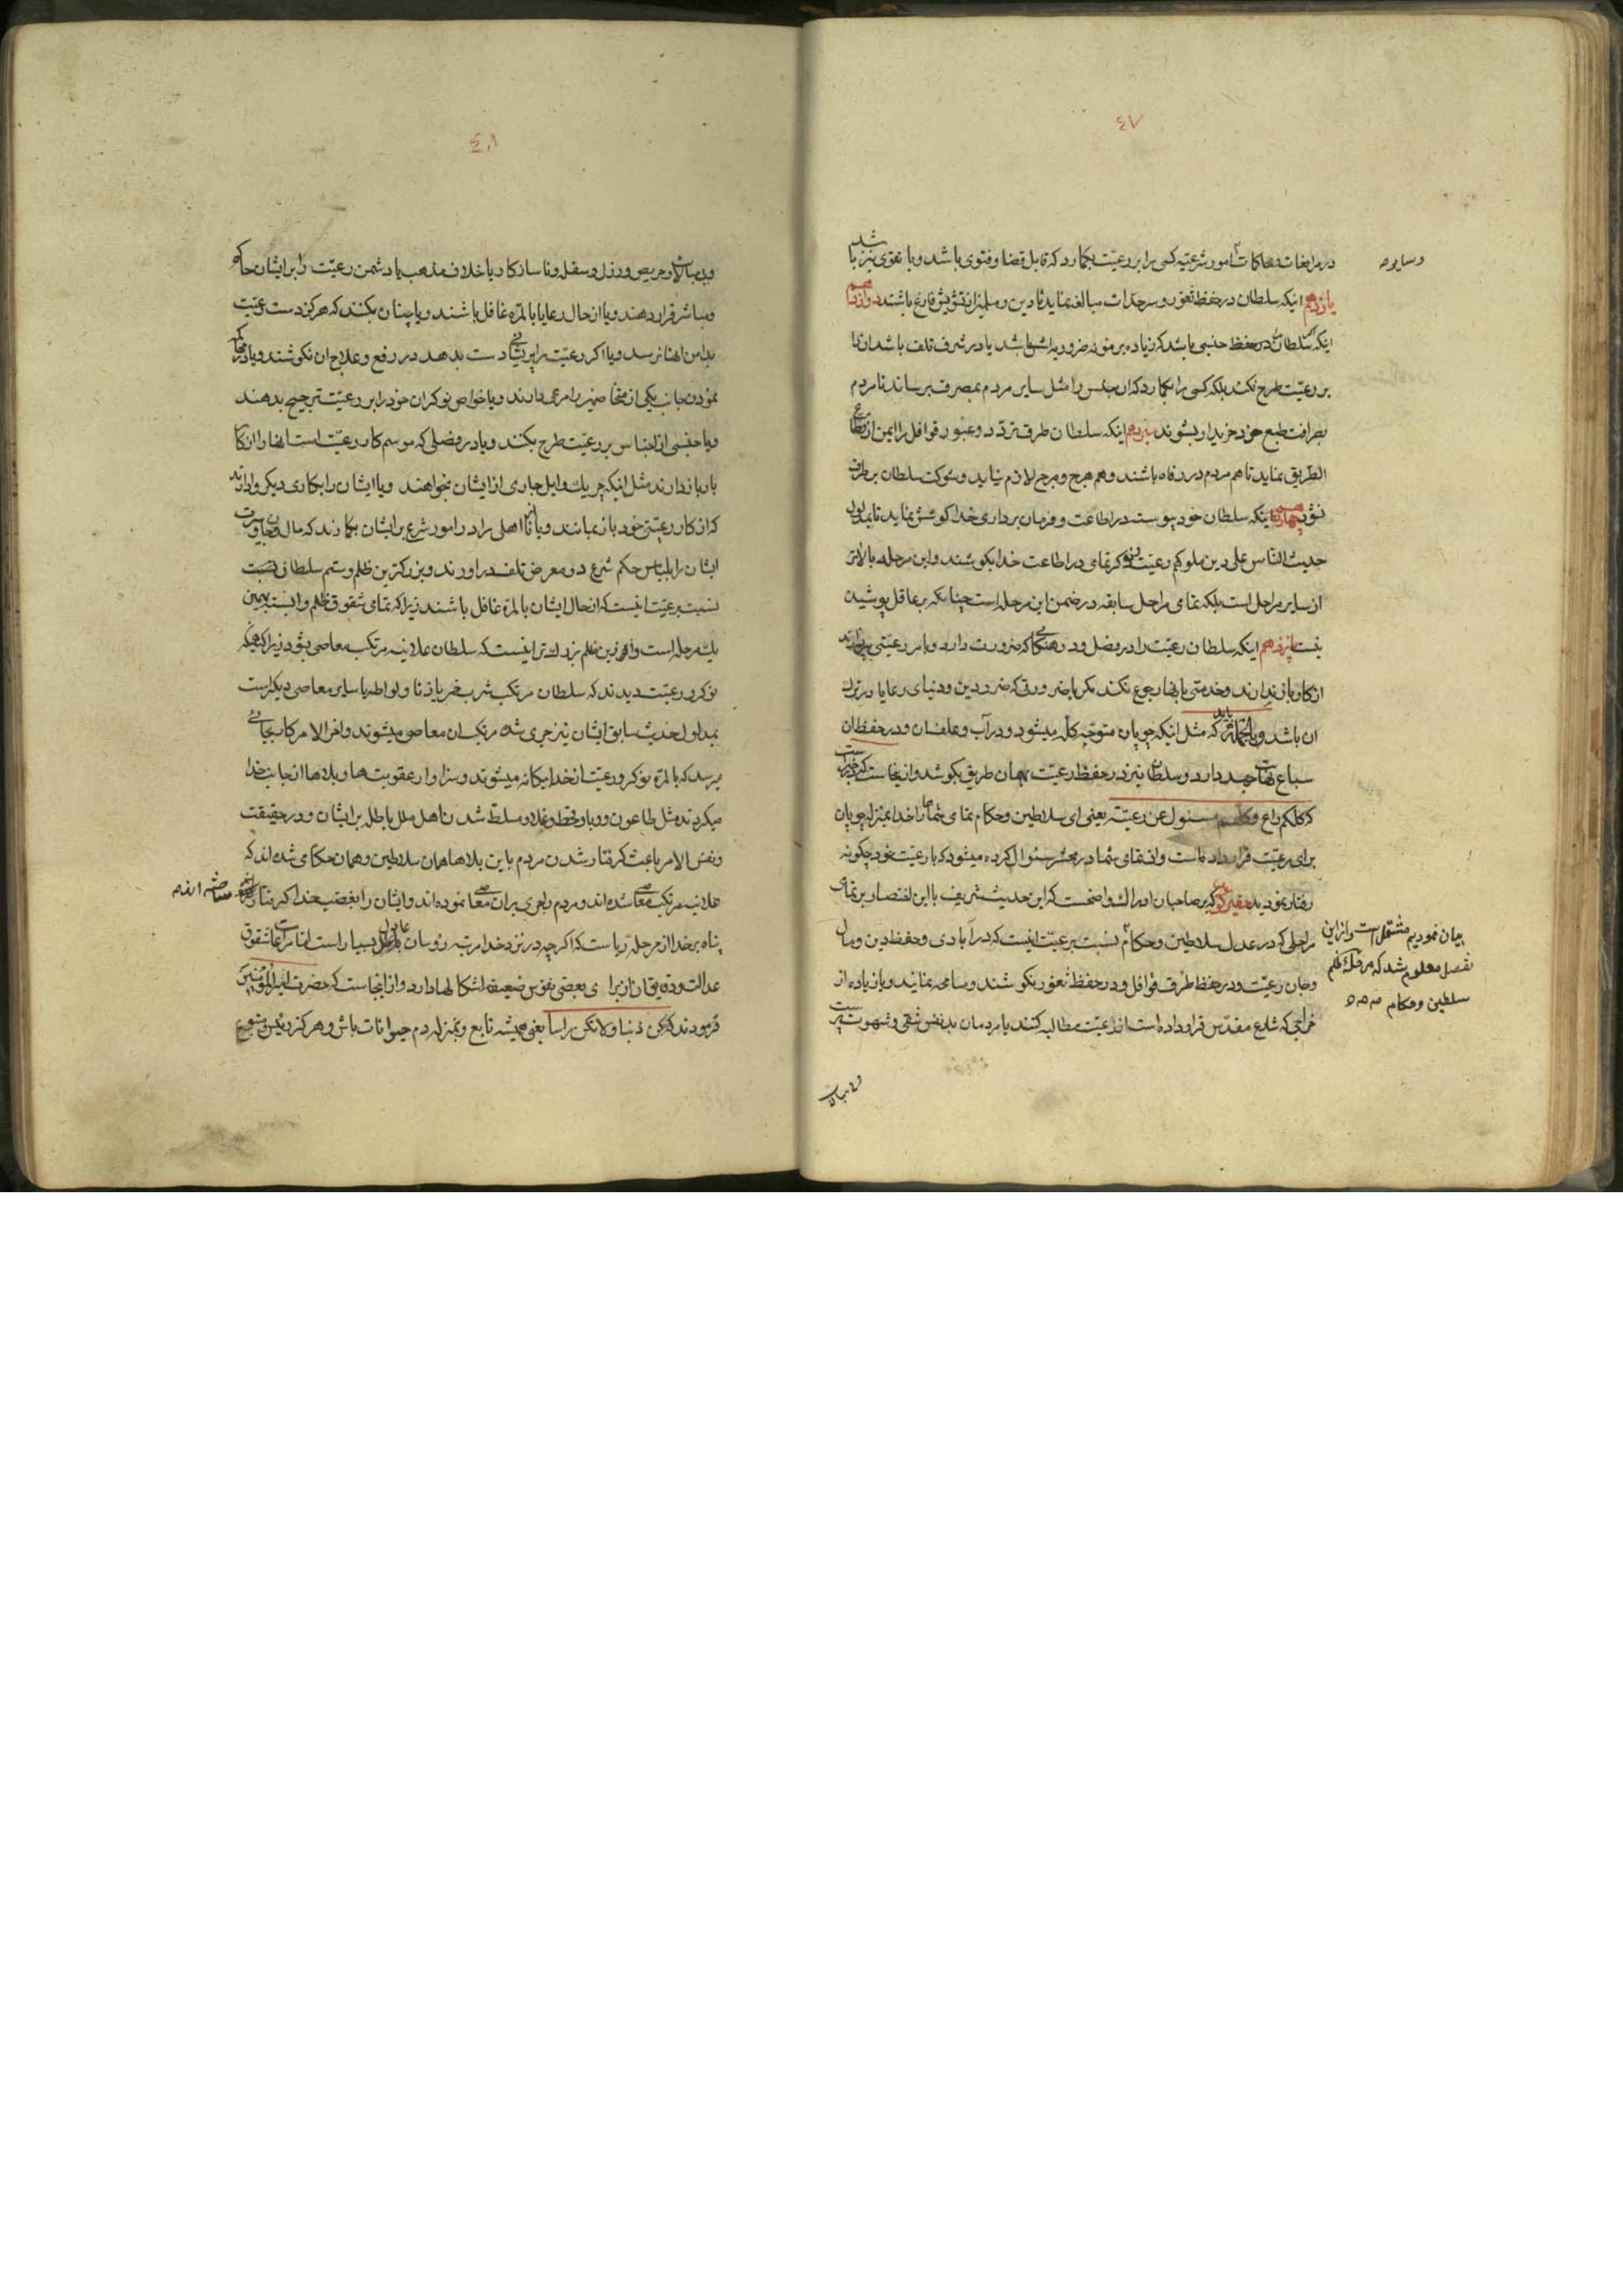 ٤٧
در مرافعات و محاکمات و امور شرعیه کسی را بر رعیت بکمارد که قابل قضا و فتوی باشد و با تقوی نیز باشد
و سایر
یازدهم اینکه سلطان در حفظ ثغور و سرحدات مبالغه نماید تا دین و مسلمین از تشویش فارغ باشند دوازدهم
اینکه اگر سلطان در حفظ جنسی باشد که زیاده بر مونه ضروریه باشد یا در شرف تلف باشد ان را
بر رعیت طرح نکند بلکه کسی را بکمارد که ان جنس را مثل سایر مردم بمصرف برساند تا مردم
بصرافت طبع خود خریدار بشوند سیزدهم اینکه سلطان طرق تردد و عبور قوافل را ایمن از قطاع
الطریق نماید تا هم مردم در رفاه باشند و هم هرج و مرج لازم نیاید و شوکت سلطان برطرف
نشود چهاردهم اینکه سلطان خود پیوسته در اطاعت و فرمان برداری خدا کوشش نماید تا بمدلول
حدیث الناس علی دین ملوکهم رعیت و نوکر تمامی در اطاعت خدا بکوشند و این مرحله بالاتر
از سایر مراحل است بلکه تمامی مراحل سابقه در ضمن این مرحله است چنانکه بر عاقل پوشیده
نیست پانزدهم اینکه سلطان رعیت را در فصل و در هنکامی که ضرورت دارد و بامر رعیتی می پردازند
از کار باز ندارند و خدمتی بانها رجوع نکند مکر با ضرورتی که ضرر دین و دنیای رعایا در ترک
ان باشد و بالجمله باید که مثل اینکه چوپان متوجه کله میشود و در آب و علف ان و در حفظ ان
سباع نهایت جهد دارد و سلطان نیز در حفظ رعیت بهمان طریق بکوشد و از اینجا است که در خبر است
که کلکم راع و کلکم مسئول عن رعیته یعنی ای سلاطین و حکام تمامی شماها را خدا بمنزله چوپان
برای رعیت قرار داده است و از تمامی شما در محشر سئوال کرده میشود که با رعیت خود چکونه
رفتار نمودید حقیر کوید که بر صاحبان ادراک واضحست که این حدیث شریف با این اختصار بر تمامی
مراحلی که در عدل سلاطین و حکام نسبت برعیت اینست که در آبادی و حفظ دین و مال
بیان نمودیم مشتمل است و از این
تفصیل معلوم شد که مرحله ظلم
سلطین و حکام
و جان رعیت و در حفظ طرق قوافل و در حفظ ثغور نکوشند و مسامحه نمایند و یا زیاده از
خراجی که شارع مقدس قرار داده است از رعیت مطالبه کنند یا مردمان بد نفس شقی و شهوت پرست
و بد مبالات
٤٨
و بد مبالات و حریص و رزل و سفله و ناسازکار یا خلاف مذهب یا دشمن رعیت را بر ایشان حاکم
و مباشر قرار دهند و یا از حال رعایا بالمره غافل باشند و یا چنان بکنند که هرکز دست رعیت
بدامن انها نرسد و یا اکر رعیت را پریشانی دست بدهد در رفع و علاج ان نکوشند و یا در محاکمه
نمودن جانب یکی از متخاصمین را مرعی دارند و یا خواص نوکران خود را بر رعیت ترجیح بدهند
و یا جنسی از اجناس بر رعیت طرح بکنند و یا در فصلی که موسم کار رعیت است انها را از کار
باز بدارند مثل اینکه چریک و ایل جاری از ایشان بخواهند و یا ایشان را بکاری دیکر وادارند
که از کار رعیتی خود باز بمانند و یا نا اهلی را در امور شرع بر ایشان بکمارند که مال و جان و عزت
ایشان را بلباس حکم شرع در معرض تلف در اورند و بزرکترین ظلم و ستم سلطان
نسبت برعیت اینست که از حال ایشان بالمره غافل باشند زیرا که تمامی شقوق ظلم وابسته بهمین
یک مرحله است و از این ظلم بزرک تر اینست که سلطان علانیه مرتکب معاصی بشود زیرا که همینکه
نوکر و رعیت دیدند که سلطان مرتکب شرب خمر یا زنا و لواطه یا سایر معاصی دیکر است
بمدلول حدیث سابق ایشان نیز جری شده مرتکب ان معاصی میشوند و اخر الامر کار بجائی
میرسد که بالمره نوکر و رعیت از خدا بیکانه میشوند و سزاوار عقوبت ها و بلاها از جانب خدا
میکردند مثل طاعون و وبا و قحط و غلا و مسلط شدن اهل ملل باطله بر ایشان و در حقیقت
و نفس الامر باعث کرفتار شدن مردم باین بلاها همان سلاطین و همان حکامی شده اند که
علانیه مرتکب معاصی شده اند و مردم را جری بر ان معاصی نموده اند و ایشان را بغضب خدا کرفتار
ساخته اند
پناه بر خدا از مرحله ریاست که اکرچه در نزد خدا مرتبه روسای عادل بسیار است اما مراعات شقوق
عدالت و دقایق ان از برای بعضی نفوس ضعیفه اشکالها دارد و از اینجا است که حضرت امیر المؤمنین
فرمودند که کن ذنبا و لا تکن راسا یعنی همیشه تابع و بمنزله دم حیوانات باش و هرکز رئیس و متبوع